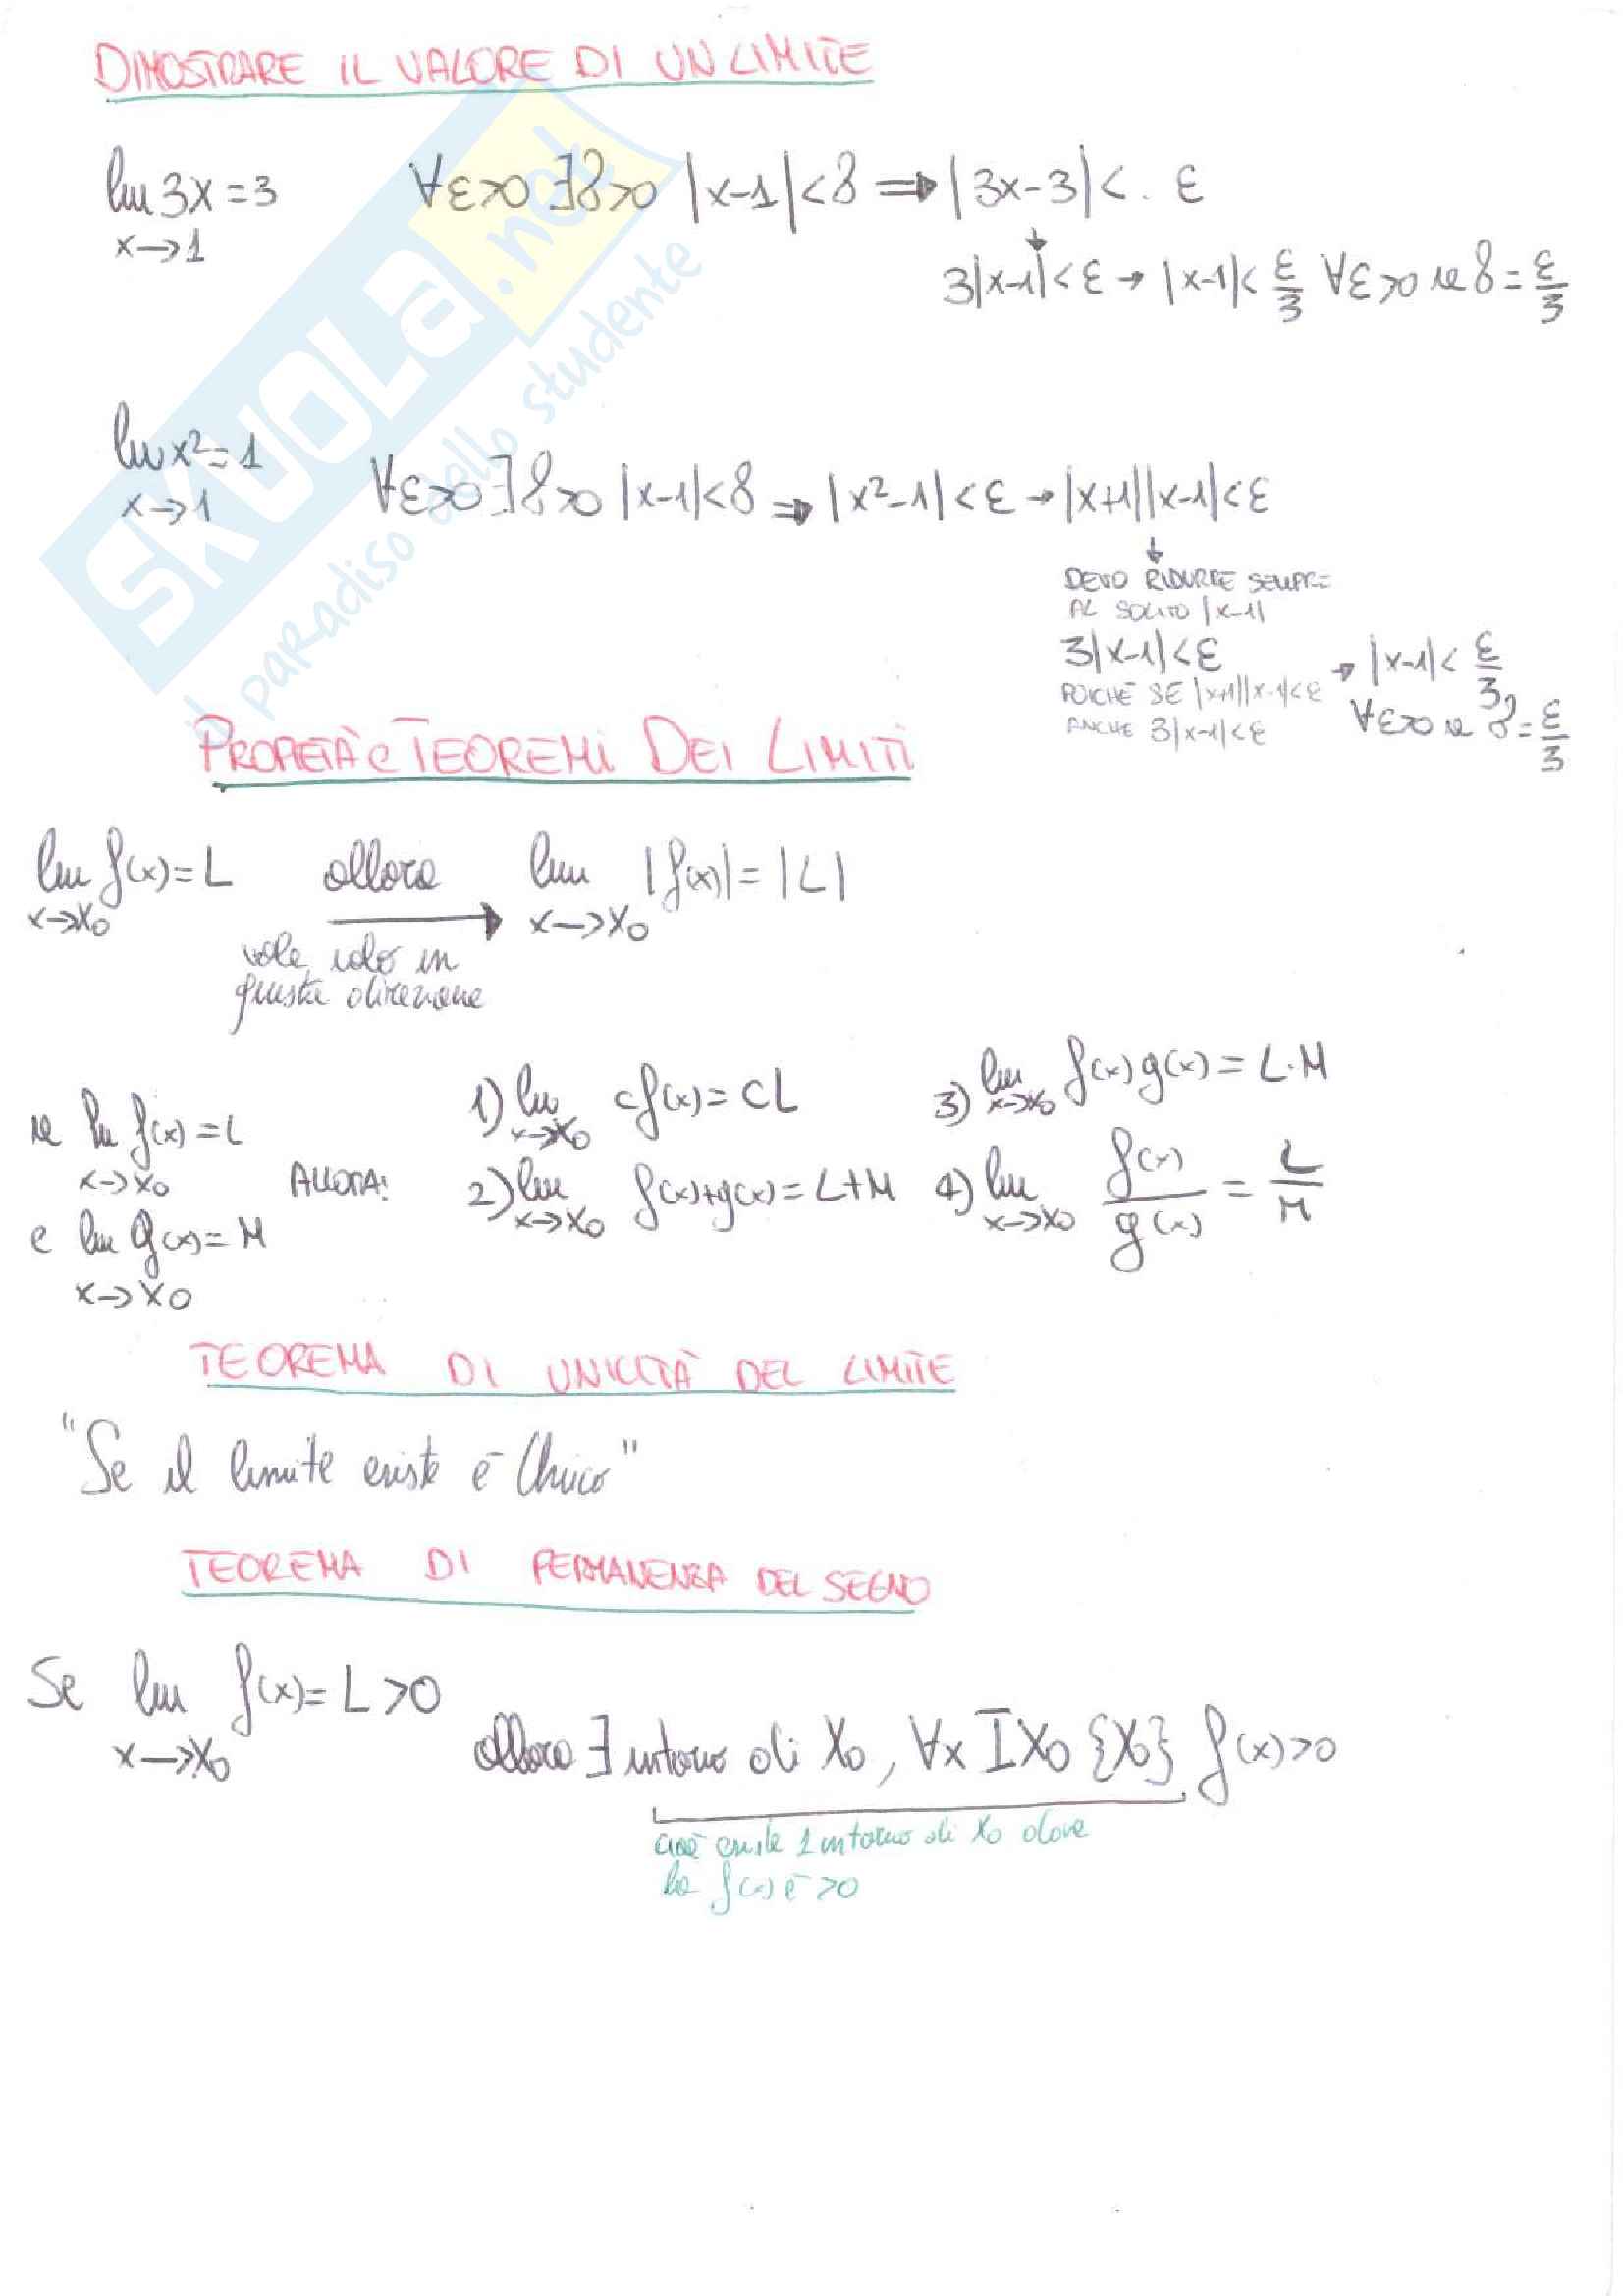 DIMOSTRARE IL VALORE DI UN LIMITE
lim 3x = 3   ∀ε>0 ∃δ>0 |x-1|<δ ⇒ |3x-3|<. ε
x→1
3|x-1|<ε → |x-1|< ε/3 ∀ε>0 se δ = ε/3
lim x² = 1
x→1
∀ε>0 ∃δ>0 |x-1|<δ ⇒ |x²-1|<ε → |x+1||x-1|<ε
DEVO RIDURRE SEMPRE
AL SOLITO |x-1|
3|x-1|<ε → |x-1|< ε/3
POICHÈ SE |x+1||x-1|<ε
ANCHE 3|x-1|<ε   ∀ε>0 se δ = ε/3
PROPIETÀ e TEOREMI DEI LIMITI
lim f(x) = L   allora   lim |f(x)| = |L|
x→x0   x→x0
vale solo in
questa direzione
se lim f(x) = L
x→x0
e lim g(x) = M
x→x0
ALLORA:
1) lim cf(x) = cL
x→x0
2) lim f(x)+g(x) = L+M
x→x0
3) lim f(x) g(x) = L·M
x→x0
4) lim f(x)/g(x) = L/M
x→x0
TEOREMA DI UNICITÀ DEL LIMITE
"Se il limite esiste è Unico"
TEOREMA DI PERMANENZA DEL SEGNO
Se lim f(x) = L >0
x→x0
allora ∃ intorno di x0, ∀x I x0 {x0} f(x)>0
cioè esiste 1 intorno di x0 dove
la f(x) è >0
SKUOLA.net
il paradiso dello studente